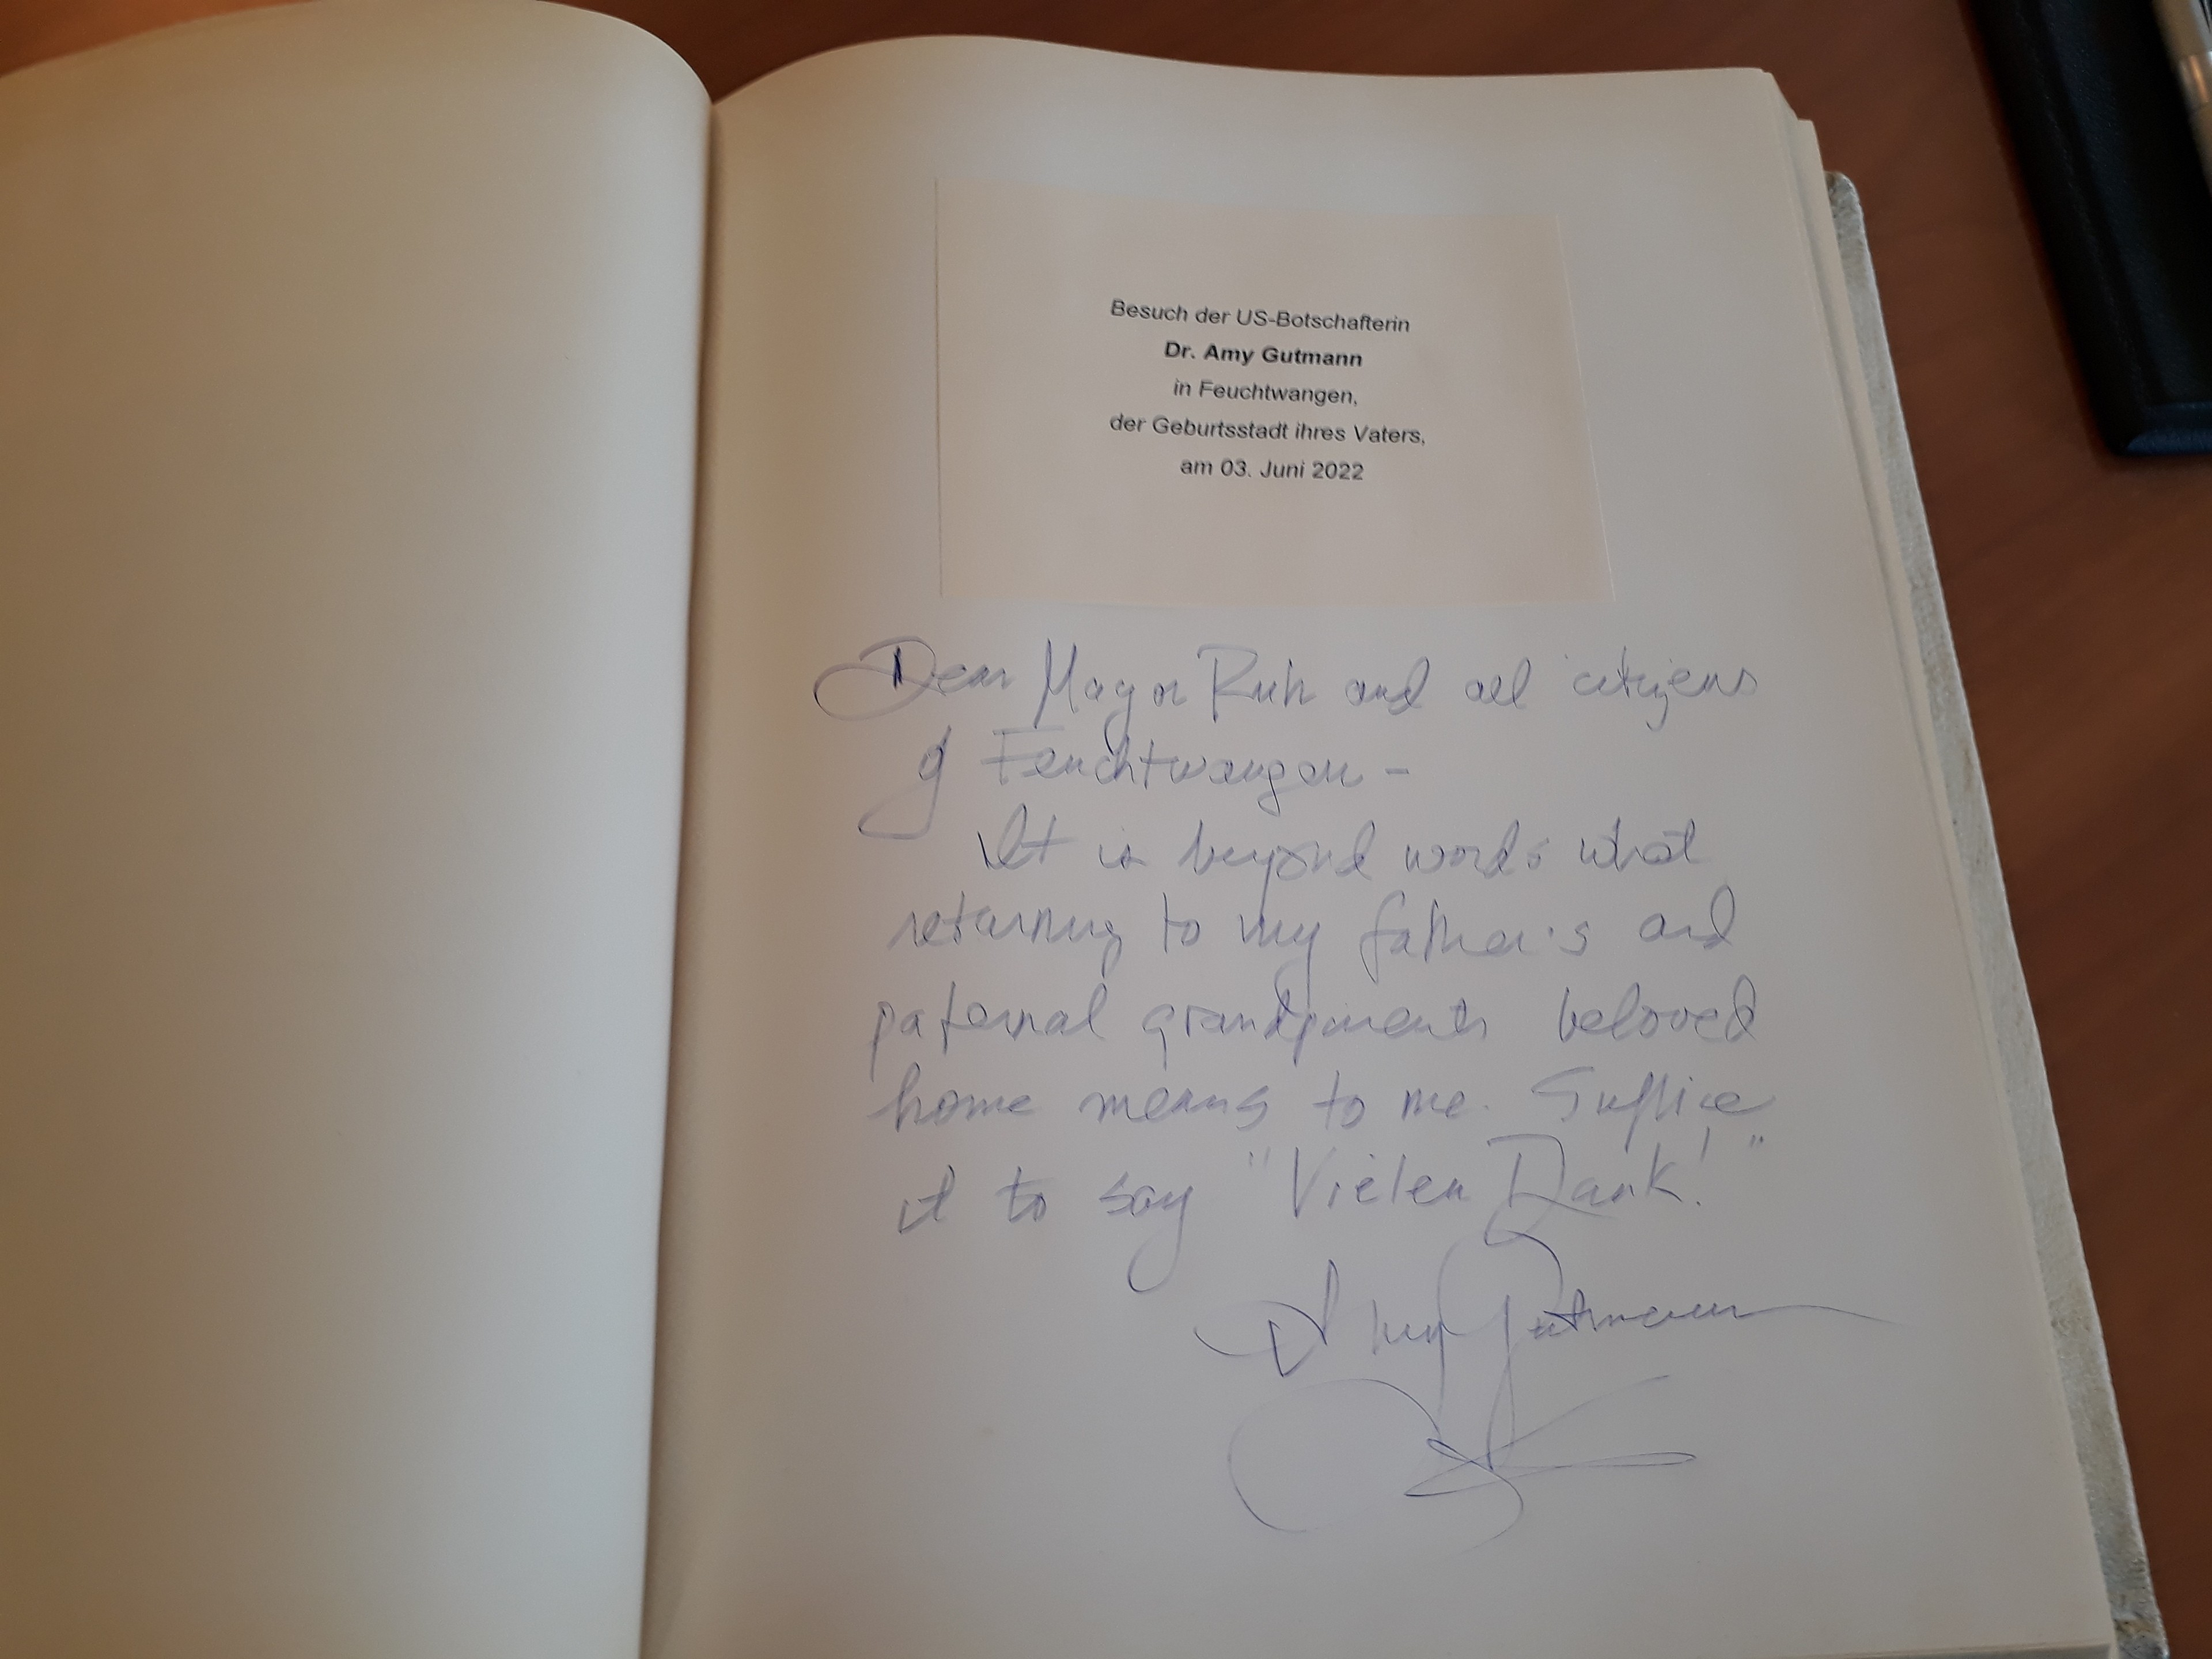 Besuch der US-Botschafterin
Dr. Amy Gutmann
in Feuchtwangen,
der Geburtsstadt ihres Vaters,
am 03. Juni 2022
Dear Mayor Ruh and all citizens
of Feuchtwangen -
It is beyond words what
returning to my father's and
paternal grandparents beloved
home means to me. Suffice
it to say "Vielen Dank!"
Amy Gutmann